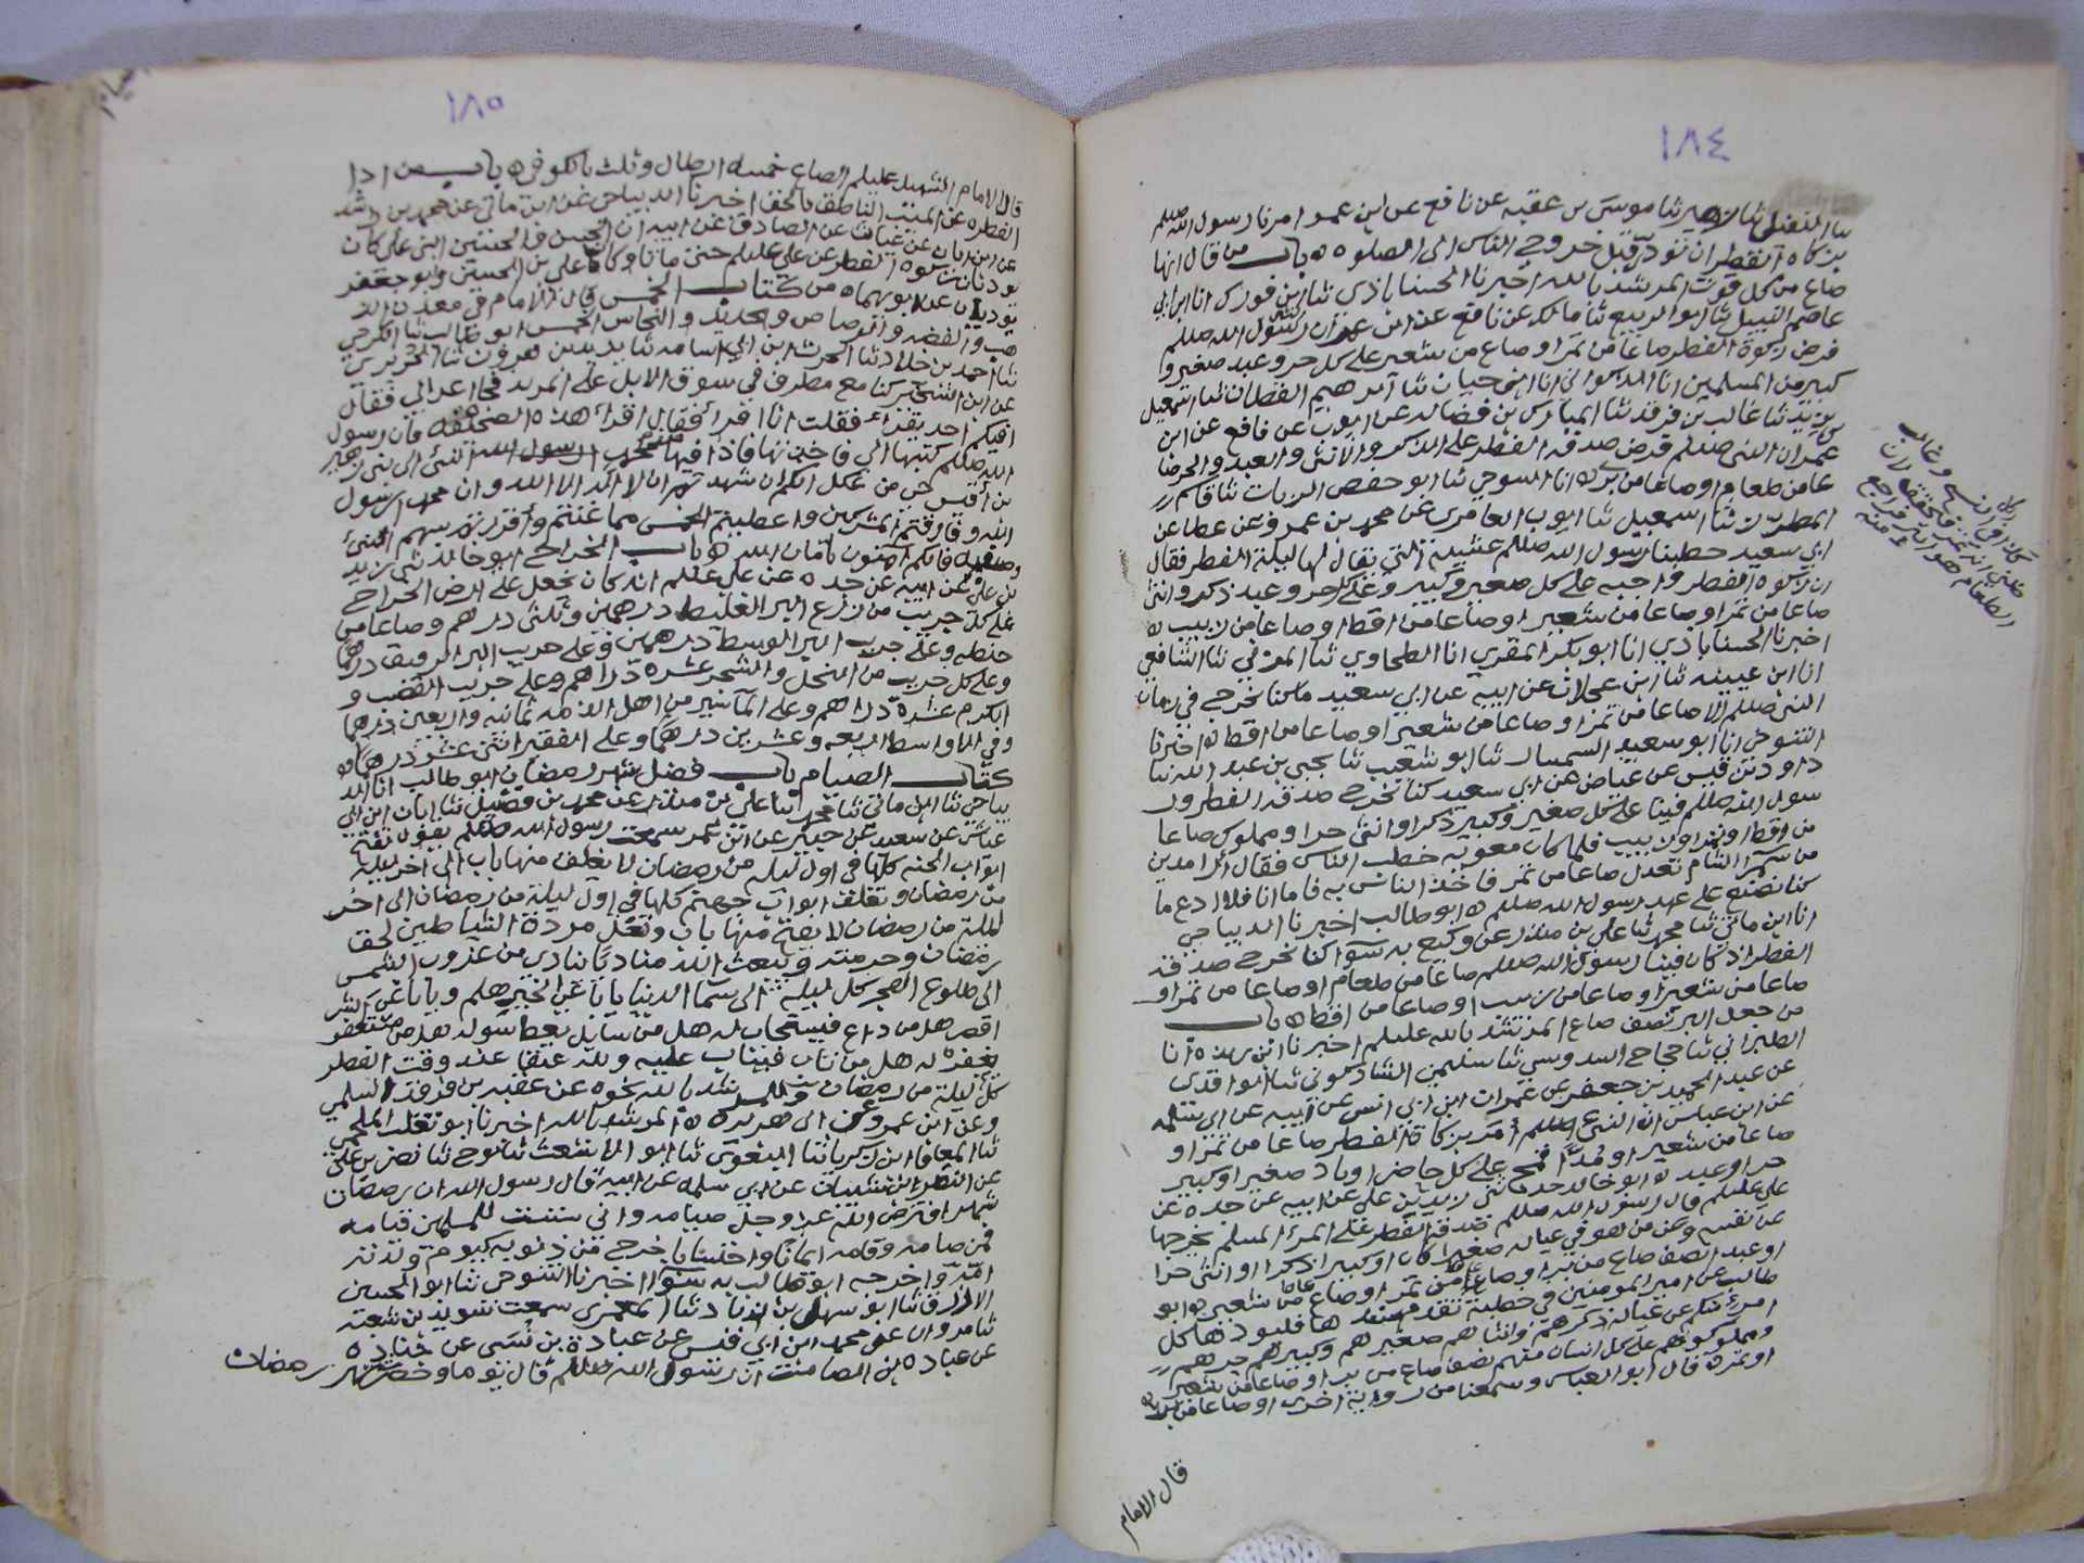 ١٨٤
ثنا موسى بن عقبه عن نافع عن ابن عمر امرنا رسول الله صللم
بزكاه الفطر ان تودى قبل خروج الناس الى الصلوه ه باب من قال انها
صاع من كل قوت المرشد بالله اخبرنا الحسناباذي ثنا ابن فورك انا ابن ابي
عاصم النبيل ثنا ابو الربيع ثنا مالك عن نافع عن ابن عمر ان رسول الله صللم
فرض زكوة الفطر صاعا من تمر او صاع من شعير على كل حر وعبد صغير و
كبير من المسلمين انا الذكواني انا ابن حيان ثنا ابرهيم القطان ثنا اسمعيل
بن يزيد ثنا غالب بن فرقد ثنا المبارك بن فضاله عن ايوب عن نافع عن ابن
عمر ان النبي صللم فرض صدقه الفطر على الذكر والانثى والعبد والحر صا
عا من طعام او صاعا من بر ه انا السوجي ثنا ابو حفص الزيات ثنا قاسم
المطرز ثنا اسمعيل ثنا ايوب العامري عن محمد بن عمرو عن عطا عن
ابي سعيد خطبنا رسول الله صللم عشية التي يقال لها ليلة الفطر فقال
ان زكوه الفطر واجبه على كل صغير وكبير وعلى كل حر وعبد ذكر وانثى
صاعا من تمر او صاعا من شعير او صاعا من اقط او صاعا من زبيب ه
اخبرنا الحسناباذي انا ابو بكر المقري انا الطحاوي ثنا المزني ثنا الشافعي
انا ابن عيينه ثنا ابن عجلان عن ابيه عن ابي سعيد ما كنا نخرج في زمان
النبي صللم الا صاعا من تمر او صاعا من شعير او صاعا من اقط ه اخبرنا
التنوخي انا ابو سعيد السمسار ثنا ابو شعيب ثنا يحيى بن عبد الله ثنا
داود بن قيس عن عياض عن ابي سعيد كنا نخرج صدقه الفطر ور
سول الله صللم فينا على كل صغير وكبير ذكرا وانثى حرا ومملوك صاعا
من اقط او زبيب فلما كان معويه خطب الناس فقال ارا مدين
من سمرا الشام تعدل صاعا من تمر فاخذ الناس به فاما انا فلا ادع ما
كنا نصنع على عهد رسول الله صللم ه ابو طالب اخبرنا الديباجي
انا ابن ماتي ثنا محمد ثنا علي بن منذر عن وكيع به سوا كنا نخرج صدقة
الفطر اذ كان فينا رسول الله صللم صاعا من طعام او صاعا من تمر او
صاعا من شعير او صاعا من زبيب او صاعا من اقط ه باب
من جعل البر نصف صاع المرشد بالله عليلم اخبرنا ابن ريذه انا
الطبراني ثنا حجاج السدوسي ثنا سليمن الشاذكوني ثنا الواقدي
عن عبد الحميد بن جعفر عن عمران ابن ابي انس عن ابيه عن ابي سلمه
عن ابن عباس ان النبي صللم امر بزكاة الفطر صاعا من تمر او
صاعا من شعير او مدا قمح على كل حاضر او باد صغير او كبير
حر او عبد ه ابو خالد حدثني زيد بن علي عن ابيه عن جده عن
علي عليلم قال رسول الله صللم صدقة الفطر على المرا المسلم يخرجها
عن نفسه وعن من هو في عياله صغيرا كان او كبيرا ذكرا او انثى حرا
او عبد نصف صاع من بر او صاعا من تمر او صاعا من شعير ه ابو
طالب عن امير المومنين في خطبة فليودها كل
امرئ منكم عن عياله ذكرهم وانثاهم صغيرهم وكبيرهم حرهم
ومملوكهم على كل انسان منهم نصف صاع من بر او صاعا من شعير
او تمر ه قال ابو العباس وسمعنا من رواية اخرى او صاعا من
قال الامام
١٨٥
قال الامام الشهيد عليلم الصاع خمسه ارطال وثلث بالكوفى ه باب من ادا
الفطره عن الميت الناطق بالحق اخبرنا الديباجي عن ابن ماتي عن محمد بن راشد
عن ابن ابان عن غياث عن الصادق عن ابيه ان الحسن والحسين ابني علي كان
يوديان زكوه الفطر عن علي عليلم حتى ماتا وكان علي بن الحسين وابو جعفر
يوديان عن ابويهما ه من كتاب الخمس قال الامام في معدن الذ
هب والفضه والرصاص والحديد والنحاس الخمس ابو طالب ثنا الكرجي
ثنا احمد بن خلاد ثنا الحرث ابن ابي اسامه ثنا يزيد بن هرون ثنا الجريري
عن ابن الشخير كنا مع مطرف في سوق الابل على المربد فجا اعرابي فقال
افيكم احد يقرأ فقلت انا اقرأ فقال اقرأ هذه الصحيفه فان رسول
الله صللم كتبها الي فاخذتها فاذا فيها من محمد رسول الله النبي الى بني زهير
بن اقيس حي من عكل انكم ان شهدتم ان لا اله الا الله وان محمد رسول
الله وفارقتم المشركين واعطيتم الخمس مما غنمتم واقررتم بسهم النبي
وصفيه فانكم امنون بامان الله ه باب الخراج ابو خالد ثني زيد
بن علي عن ابيه عن جده عن علي عليلم انه كان يجعل على ارض الخراج
على كل جريب من زرع البر الغليظ درهمين وثلثي درهم وصاعا من
حنطه وعلى جريب البر الوسط درهمين وعلى جريب البر الرقيق درهما
وعلى كل جريب من النخل والشجر عشره دراهم وعلى جريب القضب و
الكرم عشرة دراهم وعلى المياسير من اهل الذمه ثمانيه واربعين درهما
وفي الاواسط اربعه وعشرين درهما وعلى الفقير اثني عشر درهما ه
كتاب الصيام باب فضل شهر رمضان ابو طالب انا الد
يباجي ثنا ابن ماتي ثنا محمد ثنا علي بن منذر عن محمد بن فضيل ثنا ابان ابن ابي
عياش عن سعيد بن جبير عن ابن عمر سمعت رسول الله صللم يقول تفتح
ابواب الجنه كلها في اول ليله من رمضان لا يغلق منها باب الى اخر ليلة
من رمضان وتغلق ابواب جهنم كلها في اول ليلة من رمضان الى اخر
ليلة من رمضان لا يفتح منها باب وتغل مردة الشياطين لحق
رمضان وحرمته ويبعث الله مناديا ينادي من غروب الشمس
الى طلوع الفجر كل ليلة الى سما الدنيا يا باغي الخير هلم ويا باغي الشر
اقصر هل من داع فيستجاب له هل من سايل يعطا سوله هل من مستغفر
يغفر له هل من تائب فيتاب عليه ولله عتقا عند وقت الفطر
كل ليلة من رمضان المرشد بالله نحوه عن عقبه بن فرقد السلمي
وعن ابن عمر وعن ابي هريره ه المرشد بالله اخبرنا ابو تغلب الملحمي
ثنا المعافا ابن زكريا ثنا البغوي ثنا ابو الاشعث ثنا نوح ثنا نصر بن علي
عن النضر ابن شيبان عن ابي سلمه عن ابيه قال رسول الله ان رمضان
شهر افترض الله عز وجل صيامه واني سننت للمسلمين قيامه
فمن صامه وقامه ايمانا واحتسابا خرج من ذنوبه كيوم ولدته
امه واخرجه ابو طالب به سوا اخبرنا التنوخي ثنا ابو الحسين
الازرق ثنا ابو سهل بن زياد ثنا المعمري سمعت سويد بن سعيد
ثنا مروان عن محمد ابن ابي قيس عن عبادة بن نسي عن جناده
عن عباده بن الصامت ان رسول الله صللم قال يوما وحضر شهر رمضان